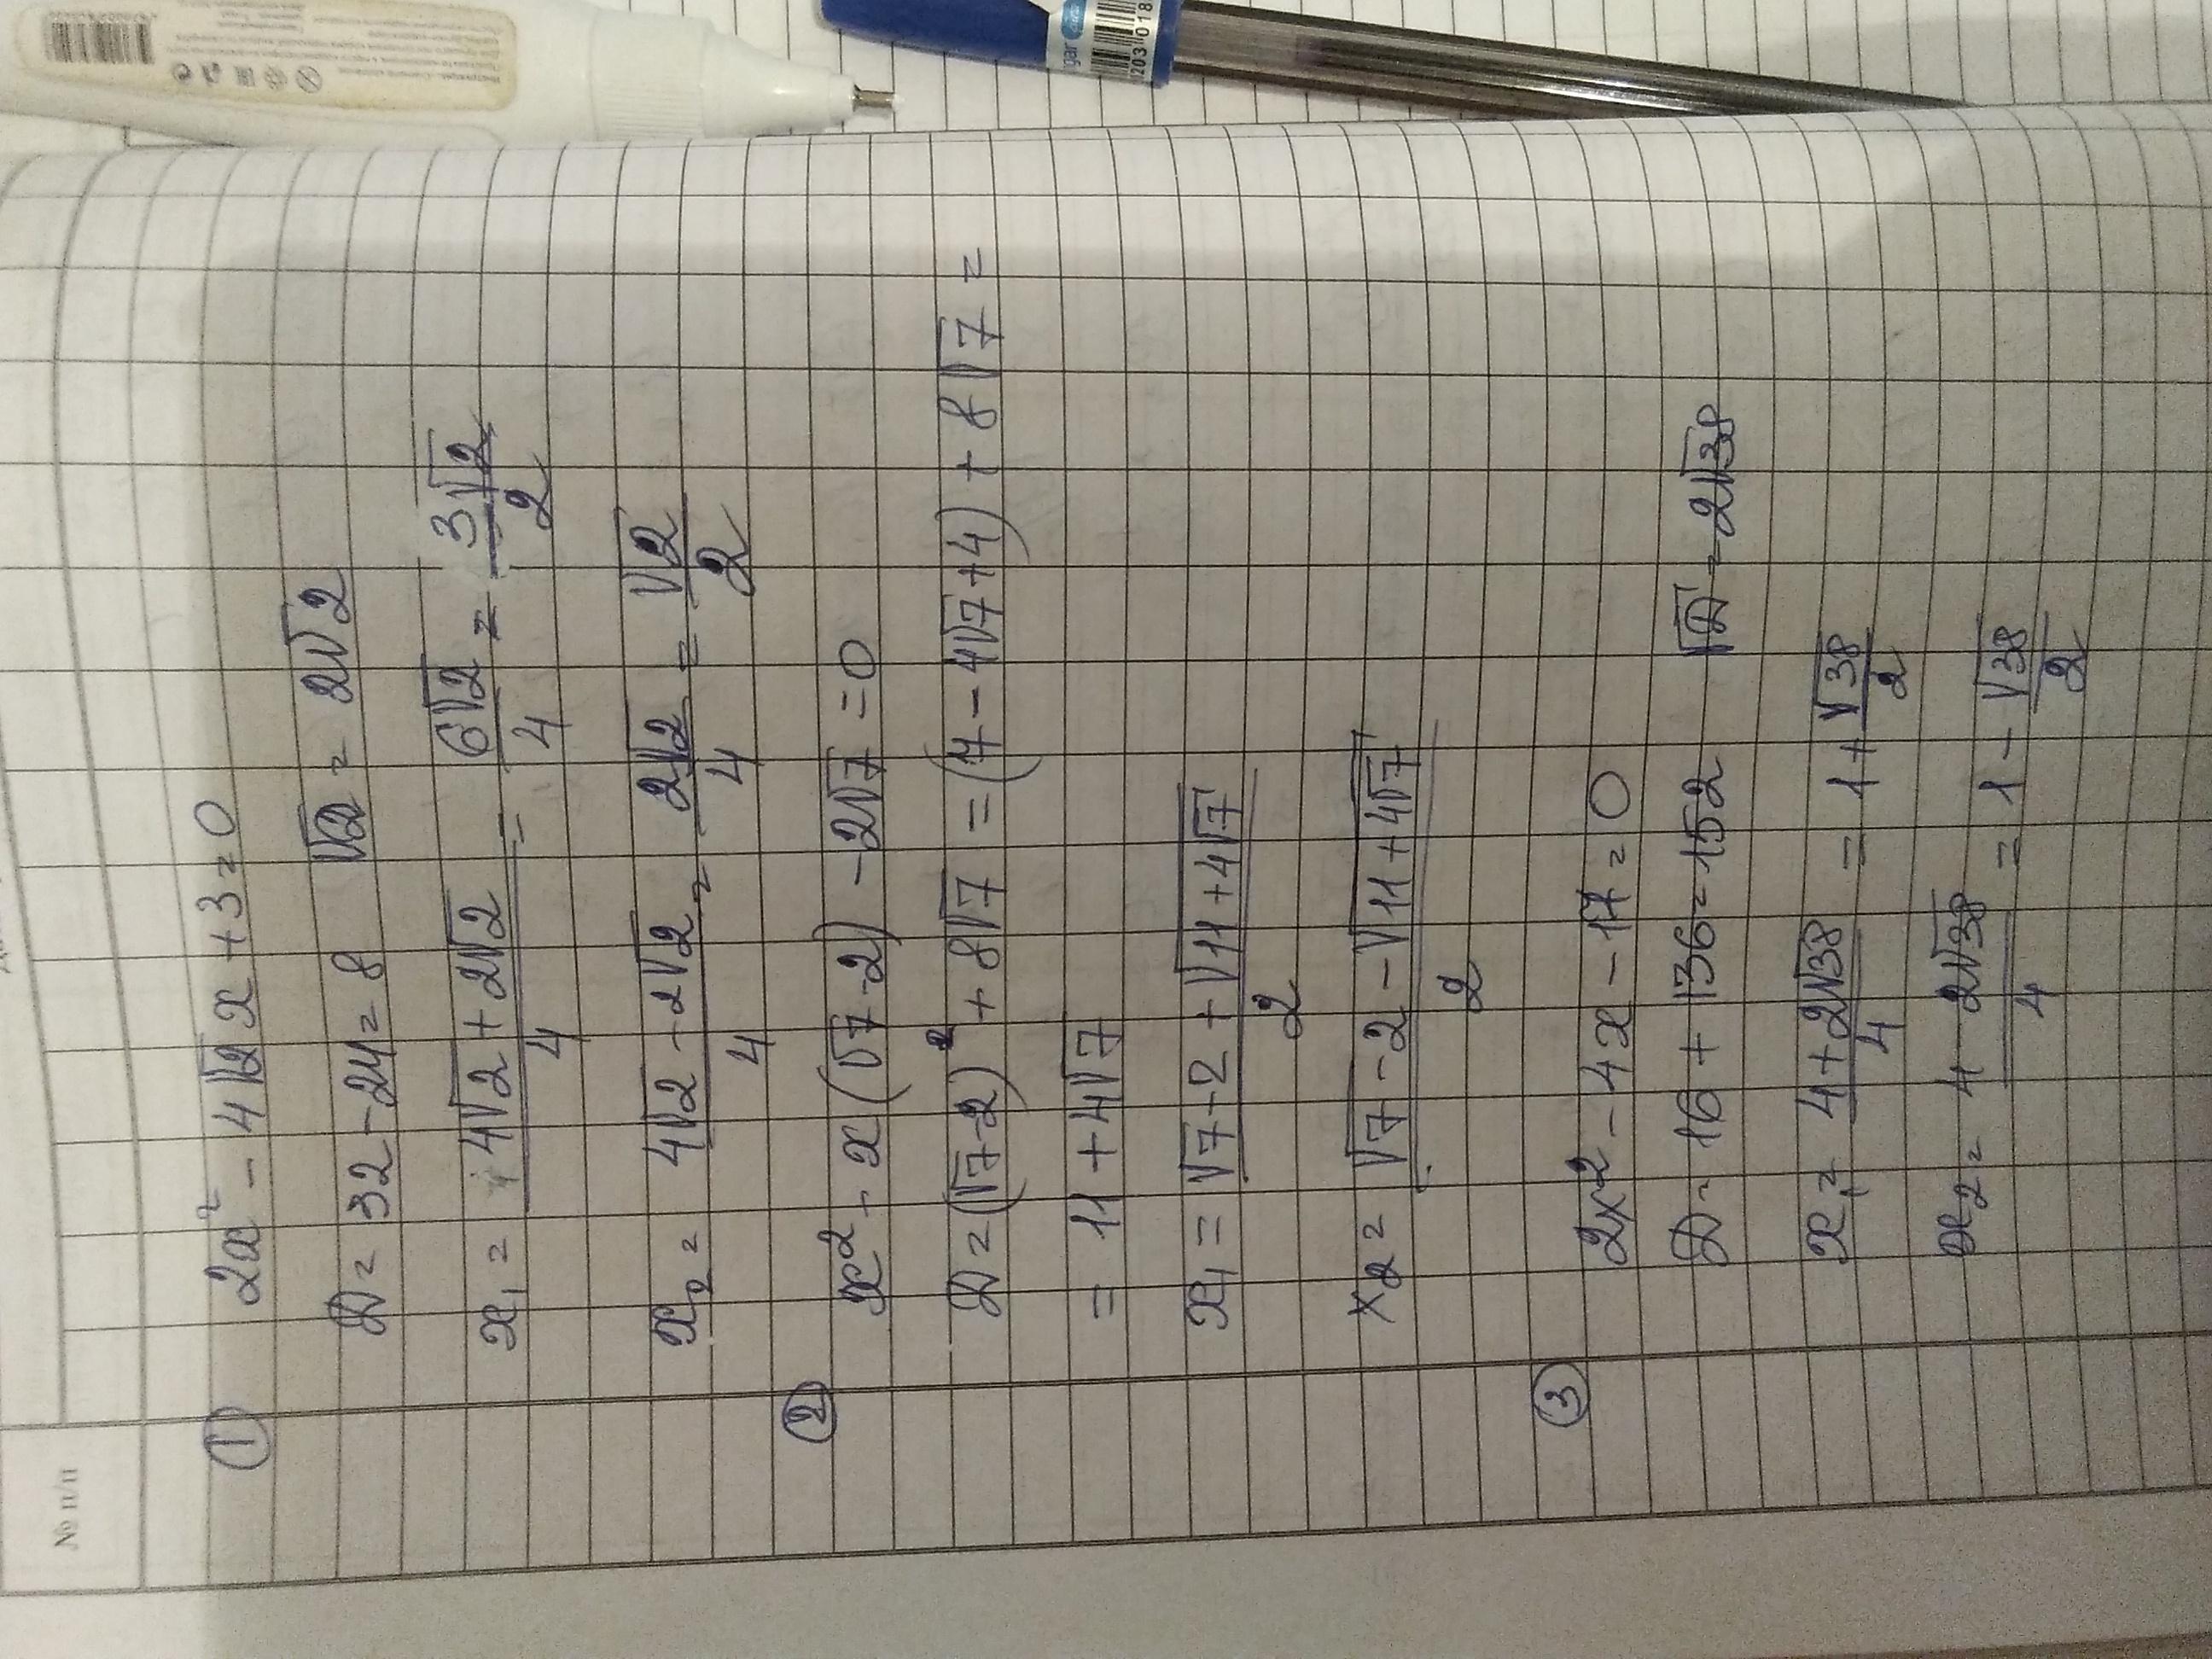 № п/п
① 2x² - 4√2 x + 3 = 0
D = 32 - 24 = 8 √D = 2√2
x₁ = (4√2 + 2√2)/4 = 6√2/4 = 3√2/2
x₂ = (4√2 - 2√2)/4 = 2√2/4 = √2/2
② x² - x(√7-2) - 2√7 = 0
D = (√7-2)² + 8√7 = (7 - 4√7 + 4) + 8√7 =
= 11 + 4√7
x₁ = (√7-2 + √(11+4√7))/2
x₂ = (√7-2 - √(11+4√7))/2
③ 2x² - 4x - 17 = 0
D = 16 + 136 = 152 √D = 2√38
x₁ = (4+2√38)/4 = 1 + √38/2
x₂ = (4 - 2√38)/4 = 1 - √38/2